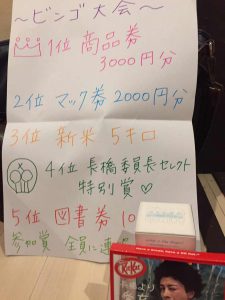 ～ビンゴ大会～
1位 商品券
3000円分
2位 マック券 2000円分
3位 新米 5キロ
4位 長橋委員長セレクト
特別賞♡
5位 図書券 10
参加賞 全員に
KitKat
より